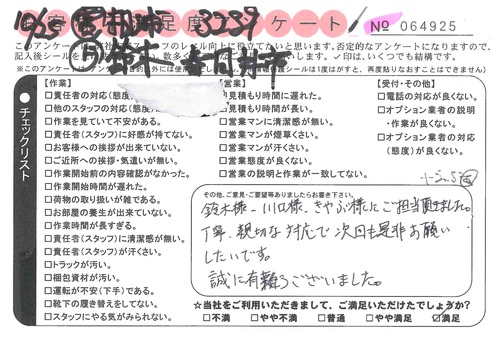 足度 ケート!
№ 064925
10/5
3239
このアンケートは
レベル向上に役立てたいと思います。否定的なアンケートになりますので、
【作業】
□責任者の対応(態度
□他のスタッフの対応(態度
□作業を見ていて不安がある。
□責任者(スタッフ)に好感が持てない。
□お客様への挨拶が出来ていない。
□ご近所への挨拶・気遣いが無い。
□作業開始前の内容確認がなかった。
□作業開始時間が遅れた。
□荷物の取り扱いが雑である。
□お部屋の養生が出来ていない。
□作業時間が長すぎる。
□責任者(スタッフ)に清潔感が無い。
□責任者(スタッフ)が汗くさい。
□トラックが汚い。
□梱包資材が汚い。
□運転が不安(下手)である。
□靴下の履き替えをしてない。
□スタッフにやる気がみられない。
●チェックリスト
【営業】
見積もり時間に遅れた。
見積もり時間が長い。
□営業マンに清潔感が無い。
□営業マンが煙草くさい。
□営業マンが汗くさい。
□営業態度が良くない。
□営業の説明と作業が一致してない。
【受付・その他】
□電話の対応が良くない。
□オプション業者の説明
・作業が良くない。
□オプション業者の対応
(態度)が良くない。
その他、ご意見・ご要望等ありましたらお書き下さい。
鈴木様、川口様、きやぶ様にご担当頂きました。
丁寧、親切な対応で次回も是非お願い
したいです。
誠に有難うございました。
☆当社をご利用いただきまして、ご満足いただけたでしょうか?
□不満 □やや不満 □普通 □やや満足 ☑満足